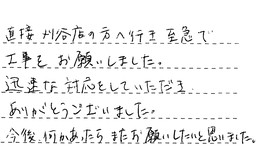 直接 刈谷店の方へ行き 至急で
工事を お願いしました。
迅速な 対応をしていただき
ありがとうございました。
今後 何かあったら またお願いしたいと思いました。